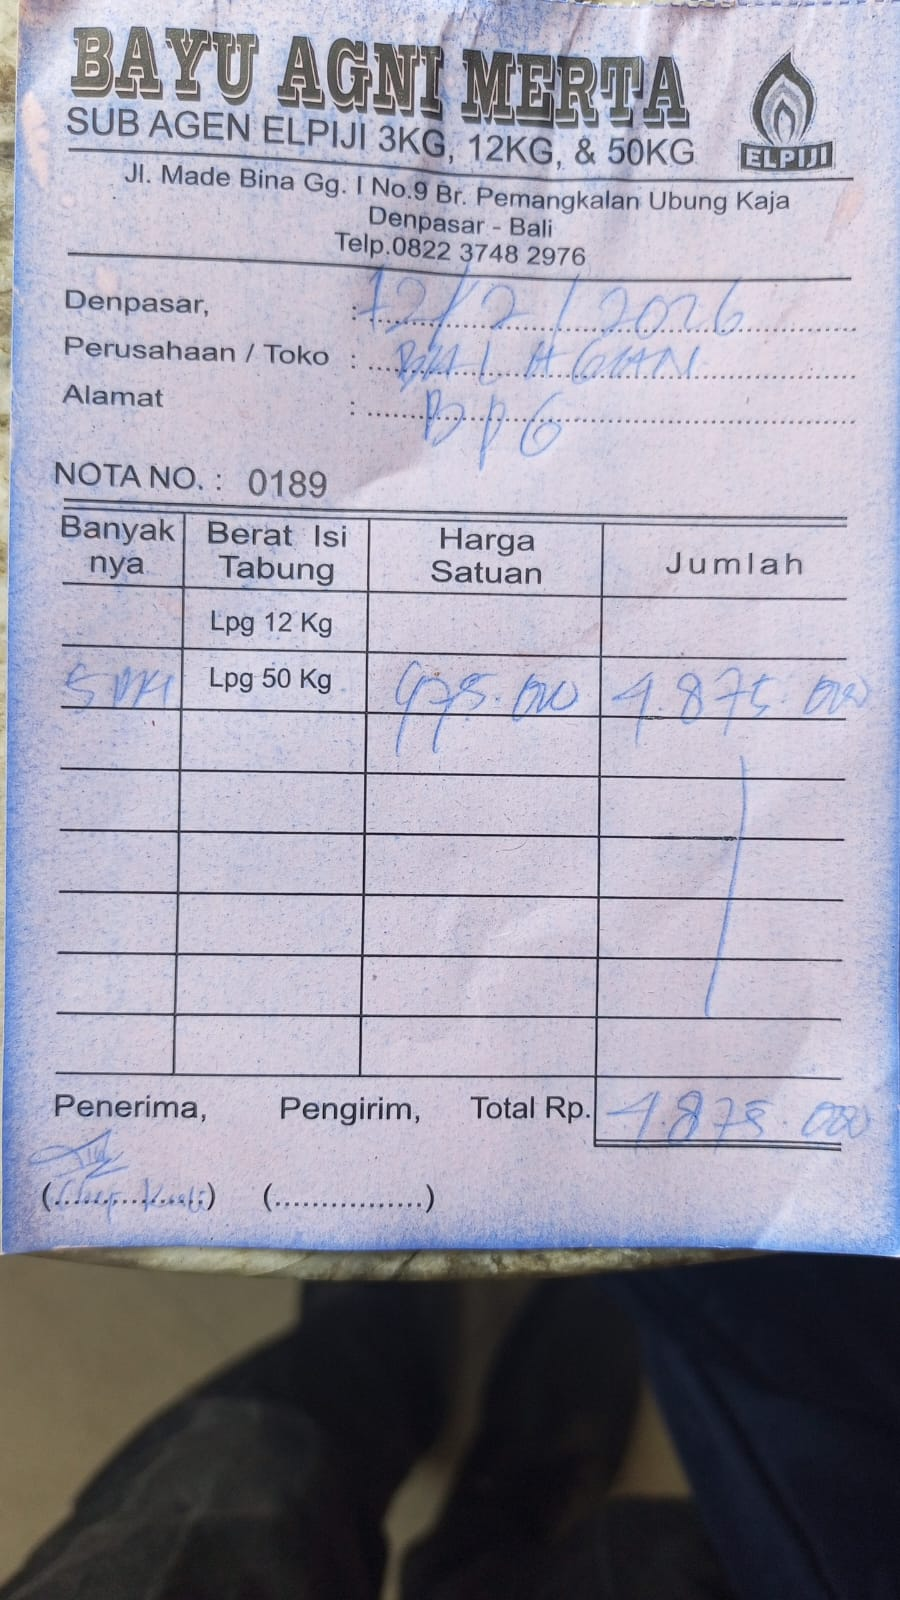 BAYU AGNI MERTA
SUB AGEN ELPIJI 3KG, 12KG, & 50KG
ELPIJI
Jl. Made Bina Gg. I No.9 Br. Pemangkalan Ubung Kaja
Denpasar - Bali
Telp.0822 3748 2976
Denpasar, : 12/2/2026
Perusahaan / Toko :
Alamat :
NOTA NO. : 0189
Banyak nya Berat Isi Tabung Harga Satuan Jumlah
Lpg 12 Kg
5 Lpg 50 Kg 975.000 4.875.000
Penerima, Pengirim, Total Rp. 4.875.000
(................) (................)